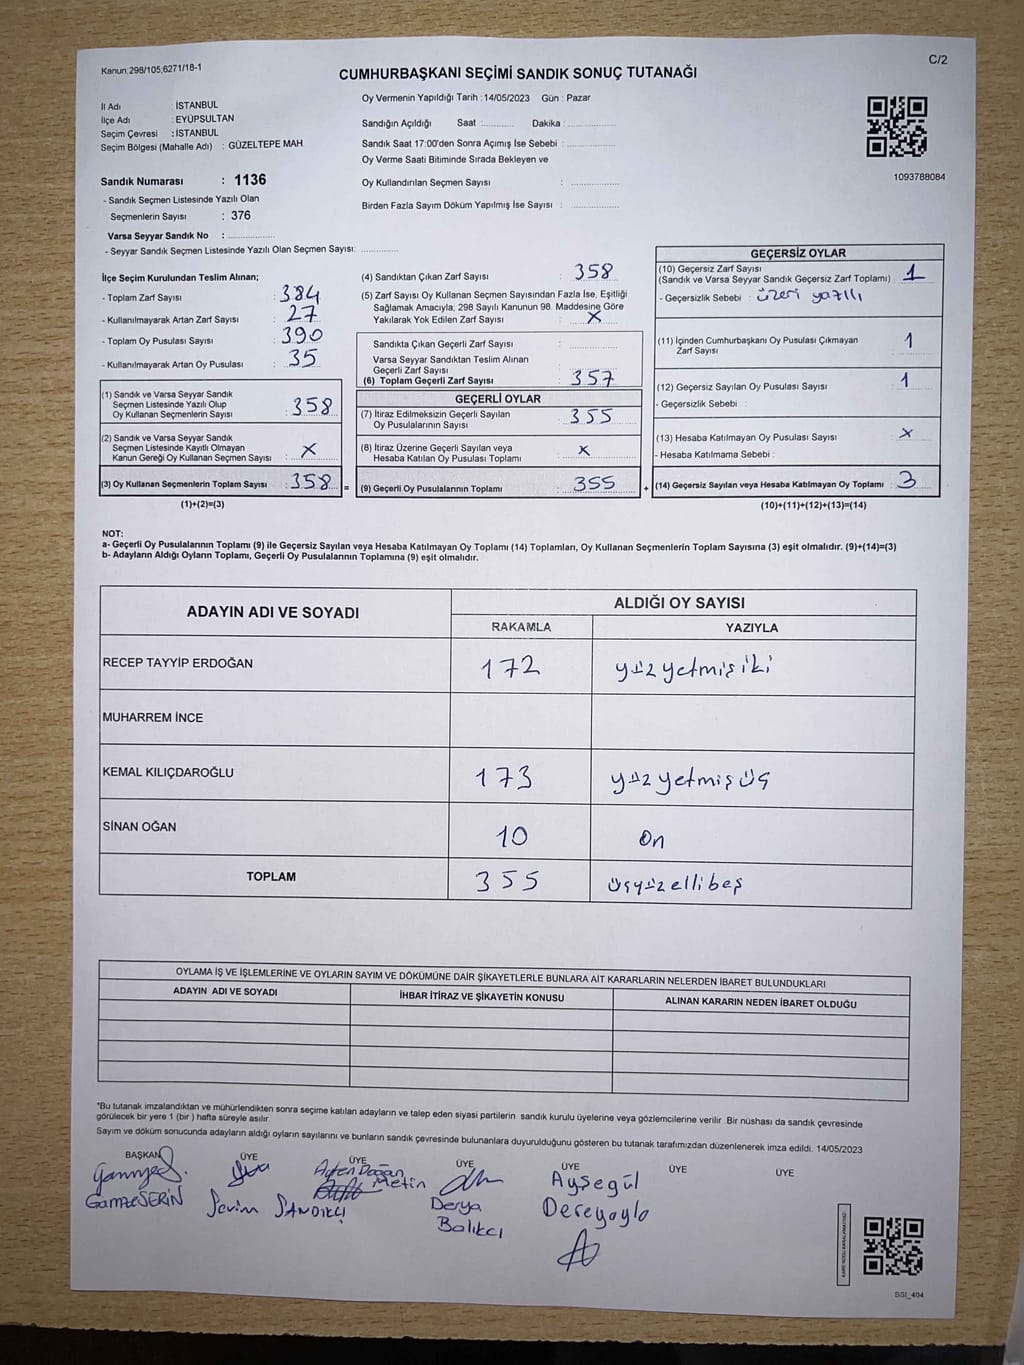 Kanun:298/105,6271/18-1
C/2
CUMHURBAŞKANI SEÇİMİ SANDIK SONUÇ TUTANAĞI
İl Adı : İSTANBUL
İlçe Adı : EYÜPSULTAN
Seçim Çevresi : İSTANBUL
Seçim Bölgesi (Mahalle Adı) : GÜZELTEPE MAH.
Oy Vermenin Yapıldığı Tarih : 14/05/2023 Gün : Pazar
Sandığın Açıldığı Saat :.......... Dakika :..............
Sandık Saat 17:00'den Sonra Açımış İse Sebebi :..............
Oy Verme Saati Bitiminde Sırada Bekleyen ve
Oy Kullandırılan Seçmen Sayısı : ..............
Birden Fazla Sayım Döküm Yapılmış İse Sayısı : ..............
1093788084
Sandık Numarası : 1136
- Sandık Seçmen Listesinde Yazılı Olan
Seçmenlerin Sayısı : 376
Varsa Seyyar Sandık No : ..............
- Seyyar Sandık Seçmen Listesinde Yazılı Olan Seçmen Sayısı: ............
İlçe Seçim Kurulundan Teslim Alınan;
- Toplam Zarf Sayısı : 384
- Kullanılmayarak Artan Zarf Sayısı : 27
- Toplam Oy Pusulası Sayısı : 390
- Kullanılmayarak Artan Oy Pusulası : 35
(1) Sandık ve Varsa Seyyar Sandık
Seçmen Listesinde Yazılı Olup
Oy Kullanan Seçmenlerin Sayısı : 358
(2) Sandık ve Varsa Seyyar Sandık
Seçmen Listesinde Kayıtlı Olmayan
Kanun Gereği Oy Kullanan Seçmen Sayısı : X
(3) Oy Kullanan Seçmenlerin Toplam Sayısı : 358 =
(1)+(2)=(3)
(4) Sandıktan Çıkan Zarf Sayısı : 358
(5) Zarf Sayısı Oy Kullanan Seçmen Sayısından Fazla İse, Eşitliği
Sağlamak Amacıyla, 298 Sayılı Kanunun 98. Maddesine Göre
Yakılarak Yok Edilen Zarf Sayısı : X
Sandıkta Çıkan Geçerli Zarf Sayısı : ..............
Varsa Seyyar Sandıktan Teslim Alınan
Geçerli Zarf Sayısı : ..............
(6) Toplam Geçerli Zarf Sayısı : 357
GEÇERLİ OYLAR
(7) İtiraz Edilmeksizin Geçerli Sayılan
Oy Pusulalarının Sayısı : 355
(8) İtiraz Üzerine Geçerli Sayılan veya
Hesaba Katılan Oy Pusulası Toplamı : X
(9) Geçerli Oy Pusulalarının Toplamı : 355 +
GEÇERSİZ OYLAR
(10) Geçersiz Zarf Sayısı
(Sandık ve Varsa Seyyar Sandık Geçersiz Zarf Toplamı) : 1
- Geçersizlik Sebebi : üzeri yazılı
(11) İçinden Cumhurbaşkanı Oy Pusulası Çıkmayan
Zarf Sayısı : 1
(12) Geçersiz Sayılan Oy Pusulası Sayısı : 1
- Geçersizlik Sebebi :
(13) Hesaba Katılmayan Oy Pusulası Sayısı : X
- Hesaba Katılmama Sebebi :
(14) Geçersiz Sayılan veya Hesaba Katılmayan Oy Toplamı : 3
(10)+(11)+(12)+(13)=(14)
NOT:
a- Geçerli Oy Pusulalarının Toplamı (9) ile Geçersiz Sayılan veya Hesaba Katılmayan Oy Toplamı (14) Toplamları, Oy Kullanan Seçmenlerin Toplam Sayısına (3) eşit olmalıdır. (9)+(14)=(3)
b- Adayların Aldığı Oyların Toplamı, Geçerli Oy Pusulalarının Toplamına (9) eşit olmalıdır.
ADAYIN ADI VE SOYADI ALDIĞI OY SAYISI
RAKAMLA YAZIYLA
RECEP TAYYİP ERDOĞAN 172 yüz yetmiş iki
MUHARREM İNCE
KEMAL KILIÇDAROĞLU 173 yüz yetmiş üç
SİNAN OĞAN 10 on
TOPLAM 355 üçyüz elli beş
OYLAMA İŞ VE İŞLEMLERİNE VE OYLARIN SAYIM VE DÖKÜMÜNE DAİR ŞİKAYETLERLE BUNLARA AİT KARARLARIN NELERDEN İBARET BULUNDUKLARI
ADAYIN ADI VE SOYADI İHBAR İTİRAZ VE ŞİKAYETİN KONUSU ALINAN KARARIN NEDEN İBARET OLDUĞU
*Bu tutanak imzalandıktan ve mühürlendikten sonra seçime katılan adayların ve talep eden siyasi partilerin sandık kurulu üyelerine veya gözlemcilerine verilir. Bir nüshası da sandık çevresinde
görülecek bir yere 1 (bir ) hafta süreyle asılır.
Sayım ve döküm sonucunda adayların aldığı oyların sayılarını ve bunların sandık çevresinde bulunanlara duyurulduğunu gösteren bu tutanak tarafımızdan düzenlenerek imza edildi. 14/05/2023
BAŞKAN ÜYE ÜYE ÜYE ÜYE ÜYE ÜYE
Gamze SERİN
Sevim SANDIKÇI
Doğan
Metin
Derya
Balıkcı
Ayşegül
Dereyayla
SSI_404